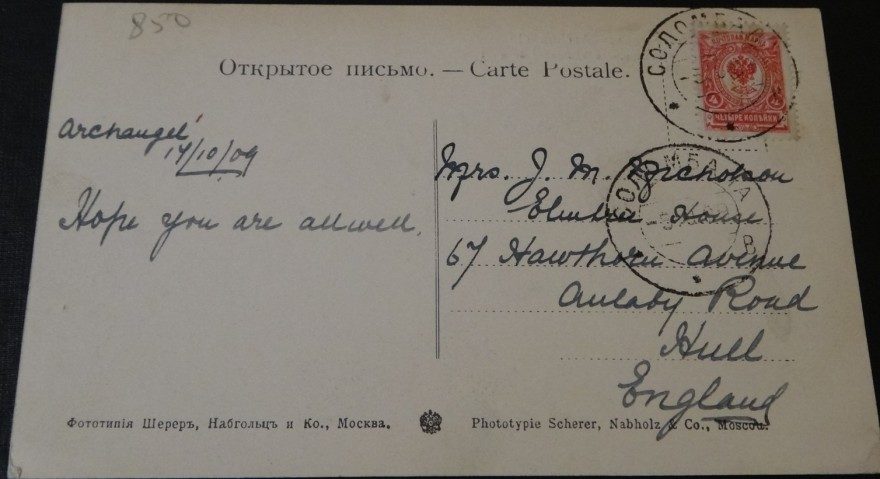 850
Открытое письмо. — Carte Postale.
СОЛОМБАЛА
4 4
ЧЕТЫРЕ КОПѢЙКИ
Archangel
14/10/09
Hope you are all well.
СОЛОМБАЛА
В
Mrs. J. M. Nicholson
House
67 Hawthorn Avenue
Anlaby Road
Hull
England
Фототипія Шереръ, Набгольцъ и Ко., Москва.
Phototypie Scherer, Nabholz & Co., Moscou.